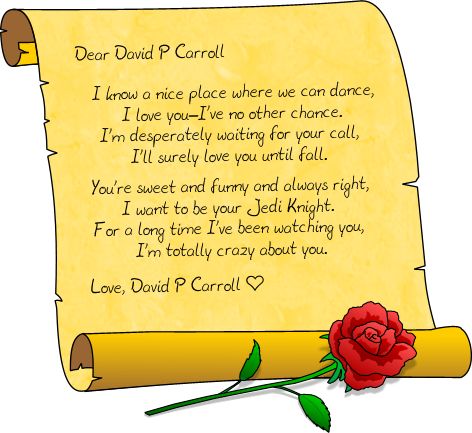 Dear David P Carroll
I know a nice place where we can dance,
I love you–I've no other chance.
I'm desperately waiting for your call,
I'll surely love you until fall.
You're sweet and funny and always right,
I want to be your Jedi Knight.
For a long time I've been watching you,
I'm totally crazy about you.
Love, David P Carroll ♡